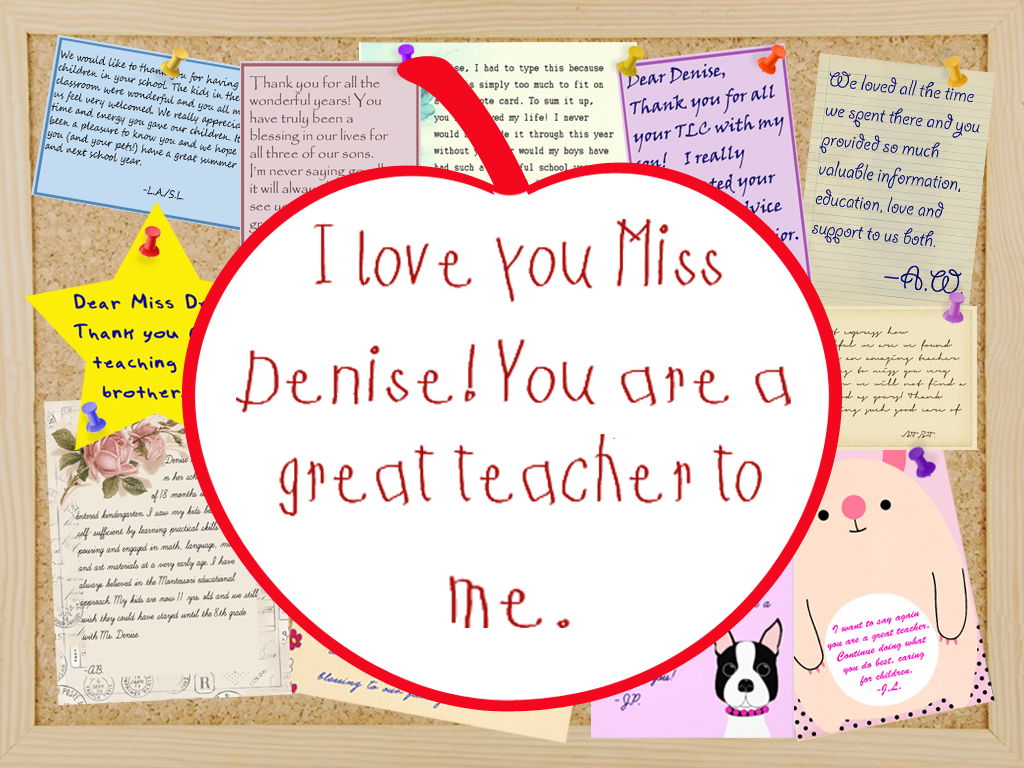 We would like to thank you for having
children in your school. The kids in the
classroom were wonderful and you all m
us feel very welcomed. We really apprecia
time and energy you gave our children. It
been a pleasure to know you and we hope
you (and your pets!) have a great summer
and next school year.
-L.A./S.L.
Thank you for all the
wonderful years! You
have truly been a
blessing in our lives for
all three of our sons.
I'm never saying go
it will alwa
see y
ise, I had to type this because
s simply too much to fit on
ote card. To sum it up,
you ved my life! I never
would de it through this year
without y would my boys have
had such a ful school
Dear Denise,
Thank you for all
your TLC with my
son! I really
ted your
dvice
ior.
We loved all the time
we spent there and you
provided so much
valuable information,
education, love and
support to us both.
-A.W.
Dear Miss De
Thank you
teaching
brother
I love you Miss
Denise! You are a
great teacher to
me.
t express how
ful we are we found
an amazing teacher
g to miss you very
we will not find a
d as yours! Thank
ing such good care of
Denise
n her sch
of 18 months
entered kindergarten. I saw my kids be
self sufficient by learning practical skills
pouring and engaged in math, language, mu
and art materials at a very early age. I have
always believed in the Montessori educational
approach. My kids are now 11 yrs. old and we still
wish they could have stayed until the 8th grade
with Ms. Denise.
-A.B.
blessing to our
a
you!
-J.P.
I want to say again
you are a great teacher.
Continue doing what
you do best, caring
for children.
-J.L.